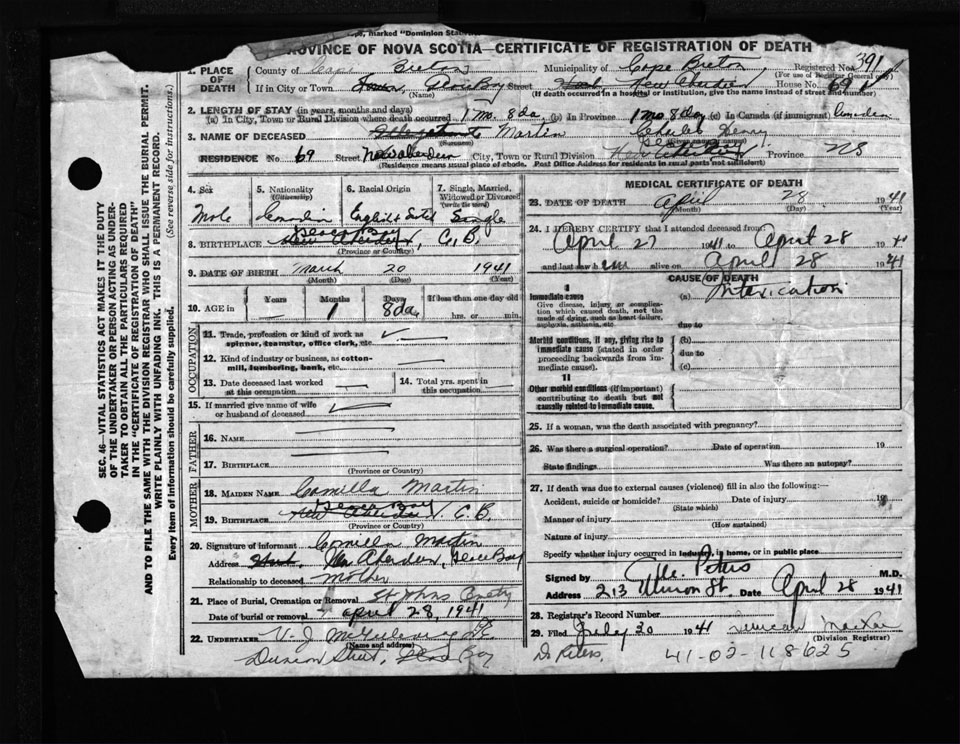 marked "Dominion
PROVINCE OF NOVA SCOTIA—CERTIFICATE OF REGISTRATION OF DEATH
1. PLACE OF DEATH
County of Cape Breton
Municipality of Cape Breton
Registered No. 391
(For use of Registrar General only)
If in City or Town Glace Bay Street New Aberdeen House No. 69
(Name) (If death occurred in a hospital or institution, give the name instead of street and number)
2. LENGTH OF STAY (in years, months and days)
(a) In City, Town or Rural Division where death occurred 1 mo. 8 da (b) In Province 1 mo 8 day (c) In Canada (if immigrant) Canadian
3. NAME OF DECEASED Martin Charles Henry
(Surname)
RESIDENCE No 69 Street New Aberdeen City, Town or Rural Division Province NS
(Residence means usual place of abode. Post Office Address for Residents in rural parts not sufficient)
4. Sex
Male
5. Nationality
(Citizenship)
Canadian
6. Racial Origin
English &
7. Single, Married, Widowed or Divorced
(write the word)
Single
8. BIRTHPLACE Glace Bay, C.B.
(Province or Country)
9. DATE OF BIRTH March 20 1941
(Month) (Day) (Year)
10. AGE in
Years
Months 1
Days 8 da
If less than one day old
hrs. or min.
OCCUPATION
11. Trade, profession or kind of work as spinner, teamster, office clerk, etc.
12. Kind of industry or business, as cotton-mill, lumbering, bank, etc.
13. Date deceased last worked at this occupation
14. Total yrs. spent in this occupation
15. If married give name of wife or husband of deceased
FATHER
16. NAME
17. BIRTHPLACE
(Province or Country)
MOTHER
18. MAIDEN NAME Camilla Martin
19. BIRTHPLACE Glace Bay C.B.
(Province or Country)
20. Signature of informant Camilla Martin
Address New Aberdeen, Glace Bay
Relationship to deceased Mother
21. Place of Burial, Cremation or Removal St Johns
Date of burial or removal April 28, 1941
22. UNDERTAKER V. J.
(Name and address)
Glace Bay
MEDICAL CERTIFICATE OF DEATH
23. DATE OF DEATH April 28 1941
(Month) (Day) (Year)
24. I HEREBY CERTIFY that I attended deceased from:
April 27 1941 to April 28 19
and last saw h alive on April 28 1941
CAUSE OF DEATH
I
Immediate cause
Give disease, injury or complication which caused death, not the mode of dying, such as heart failure, asphyxia, asthenia, etc
(a) Intoxication
due to
Morbid conditions, if any, giving rise to immediate cause (stated in order proceeding backwards from immediate cause).
(b)
due to
(c)
II
Other morbid conditions (if important) contributing to death but not causally related to immediate cause.
25. If a woman, was the death associated with pregnancy?
26. Was there a surgical operation? Date of operation 19
State findings Was there an autopsy?
27. If death was due to external causes (violence) fill in also the following:—
Accident, suicide or homicide? Date of injury 19
(State which)
Manner of injury
(How sustained)
Nature of injury
Specify whether injury occurred in industry, in home, or in public place
Signed by Peters M.D.
Address 213 St. Date April 28 1941
28. Registrar's Record Number
29. Filed July 30 1941 Duncan MacRae
(Division Registrar)
Dr Peters. 41-02-118625
SEC. 46—VITAL STATISTICS ACT MAKES IT THE DUTY
OF THE UNDERTAKER OR PERSON ACTING AS UNDER-
TAKER TO OBTAIN ALL THE PARTICULARS REQUIRED
IN THE "CERTIFICATE OF REGISTRATION OF DEATH"
AND TO FILE THE SAME WITH THE DIVISION REGISTRAR WHO SHALL ISSUE THE BURIAL PERMIT.
WRITE PLAINLY WITH UNFADING INK. THIS IS A PERMANENT RECORD.
Every item of information should be carefully supplied. (See reverse side for instructions.)